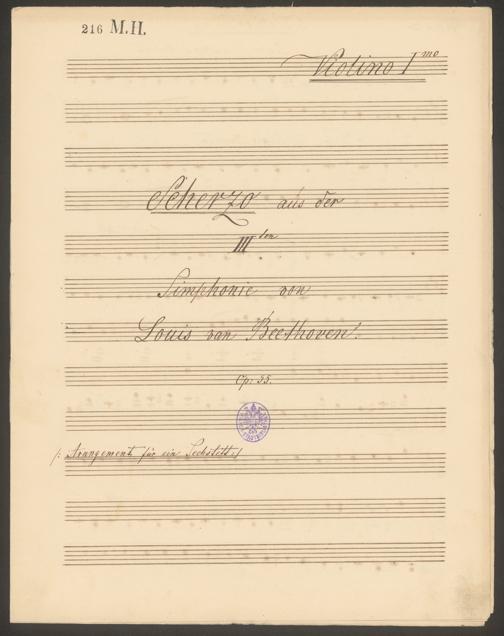 216 M.H.
Violino 1mo
Scherzo aus der
IIIten
Simphonie von
Louis van Beethoven.
Op: 55.
/: Arangement für ein Sechstett :/